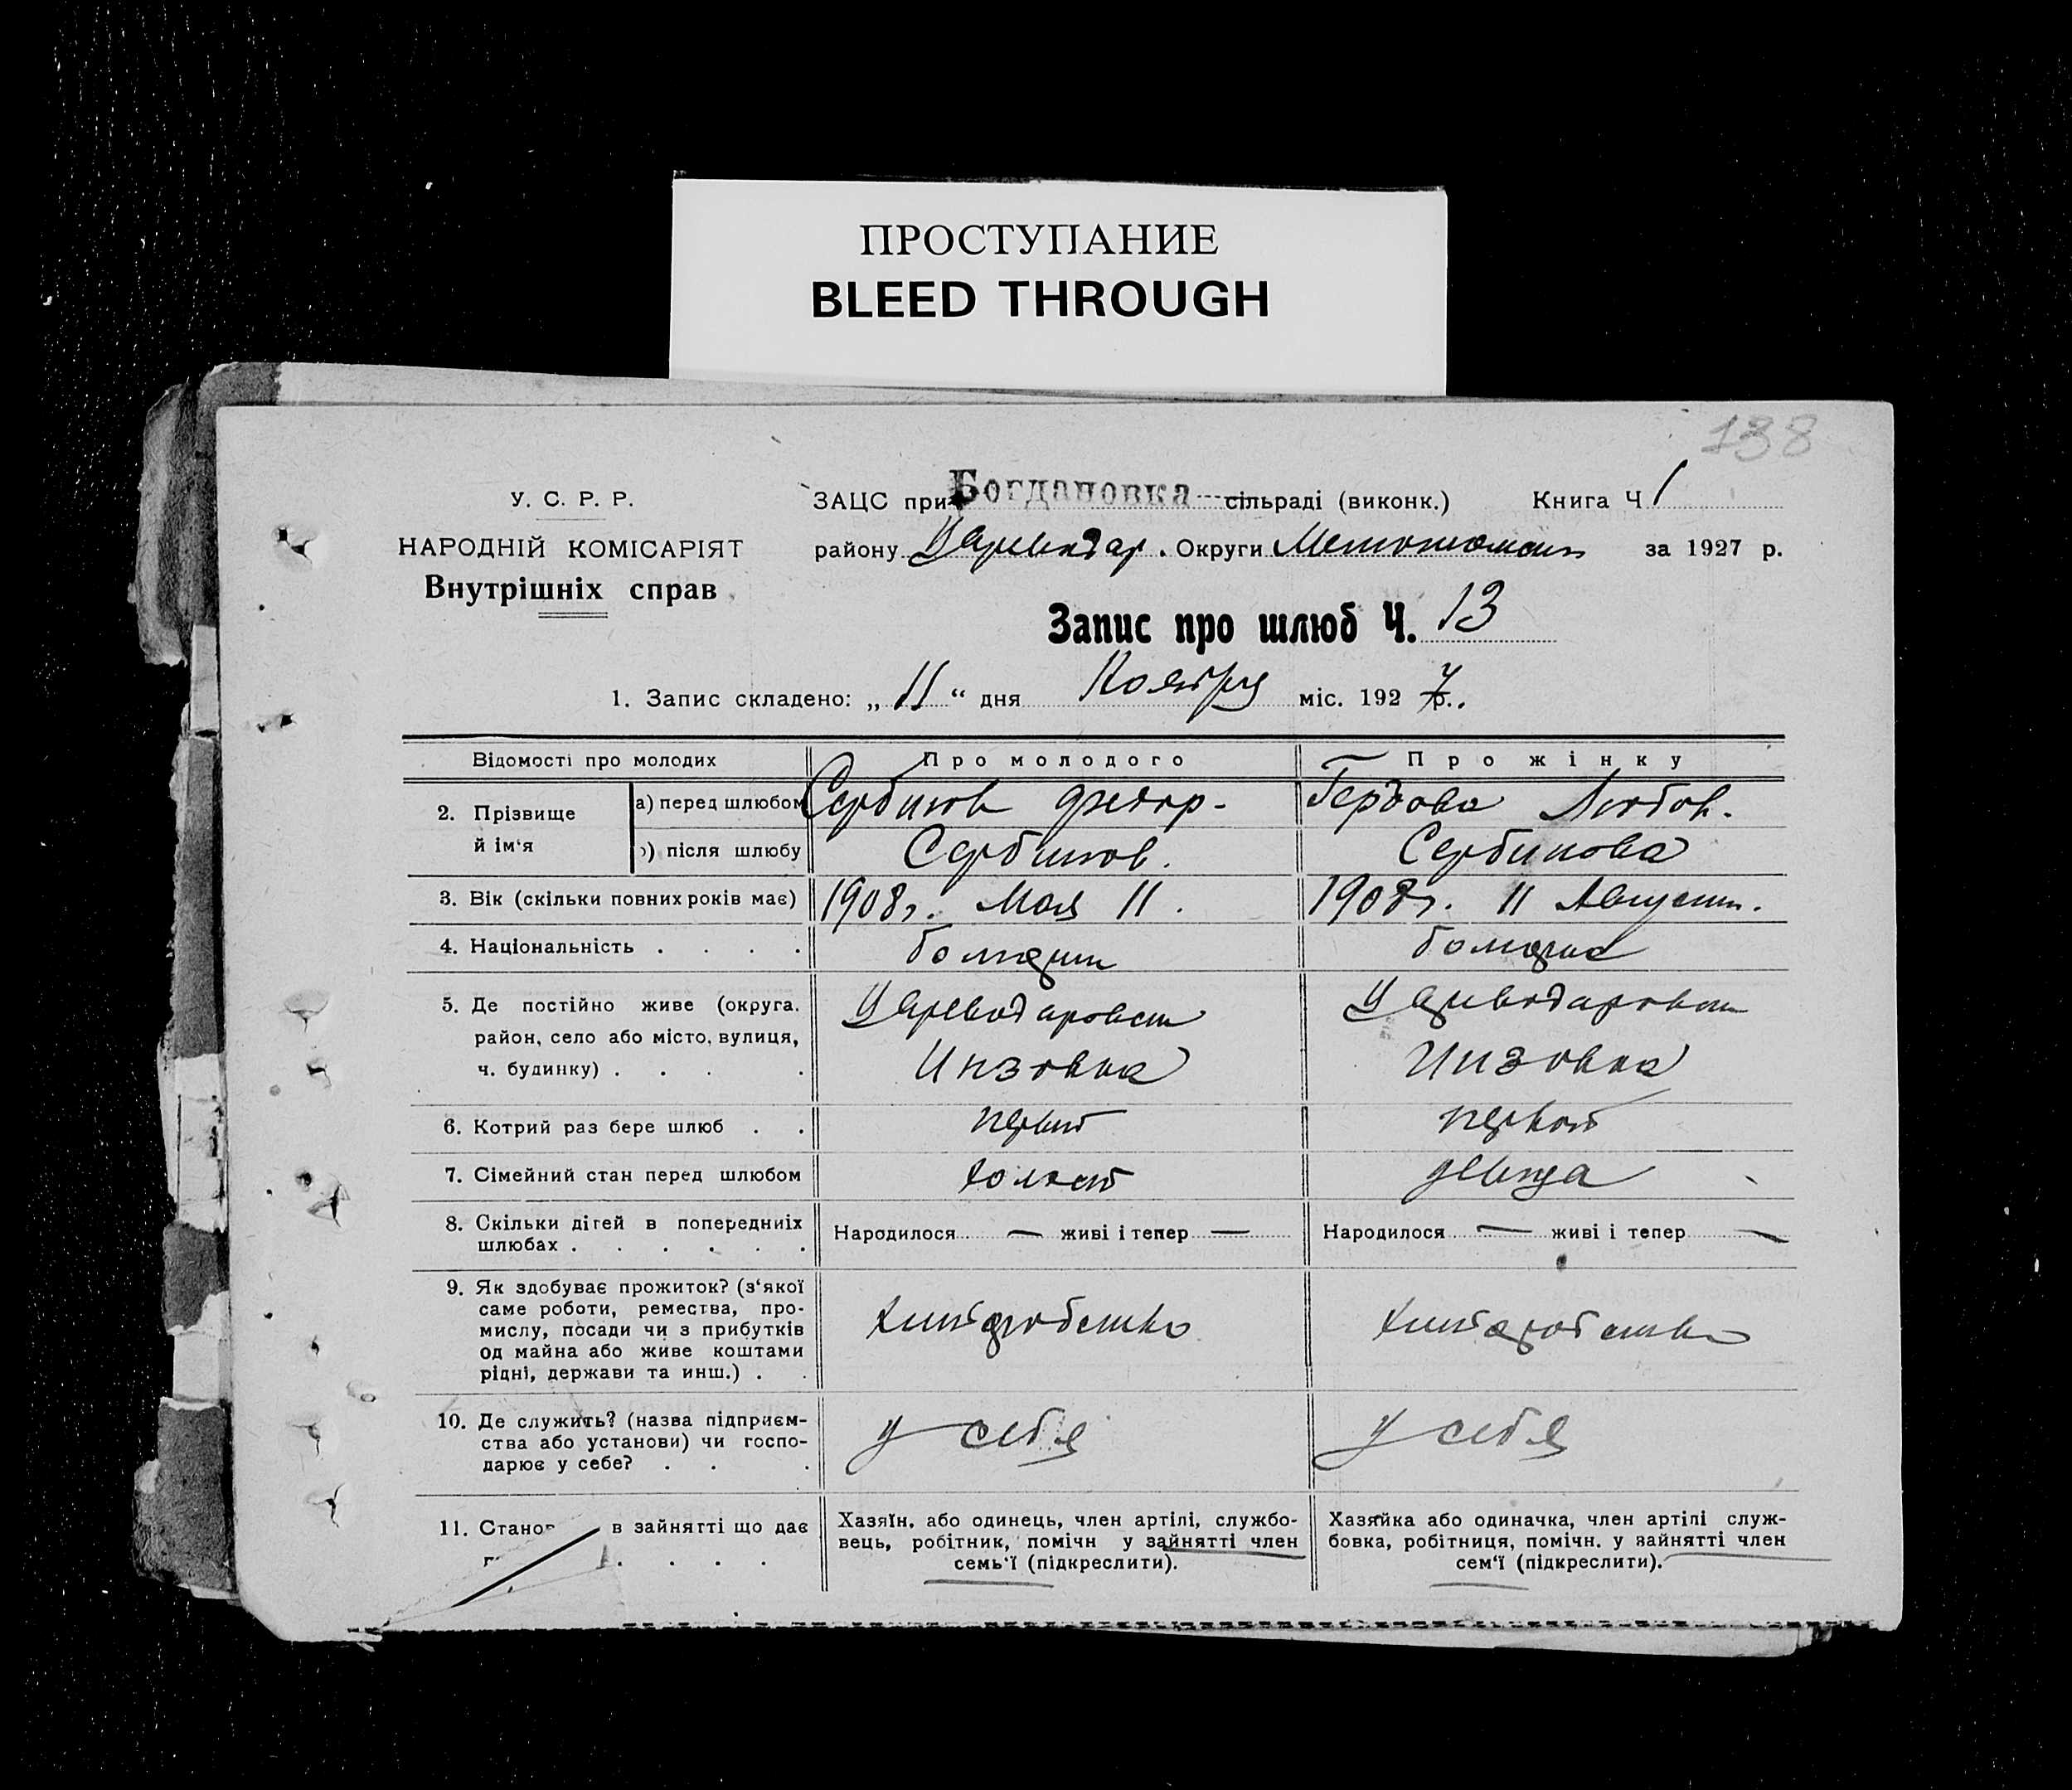 ПРОСТУПАНИЕ
BLEED THROUGH
138
У. С. Р. Р.
НАРОДНІЙ КОМІСАРІЯТ
Внутрішніх справ
ЗАЦС при Богдановка сільраді (виконк.) Книга Ч 1
району Цареводар. Округи за 1927 р.
Запис про шлюб Ч. 13
1. Запис складено: „ 11 “ дня Ноября міс. 192 7 р.
Відомості про молодих Про молодого Про жінку
2. Прізвище й ім‘я
а) перед шлюбом Сербинов Федор. Гербова Любов.
б) після шлюбу Сербинов. Сербинова
3. Вік (скільки повних років має) 1908г. Мая 11. 1908г. 11 Август.
4. Національність . . . . болгарин болгарка
5. Де постійно живе (округа. район, село або місто, вулиця, ч. будинку) . . . . Цареводаровск Инзовка Цареводаровск Инзовка
6. Котрий раз бере шлюб . . первый первый
7. Сімейний стан перед шлюбом холост девица
8. Скільки дітей в попередниіх шлюбах . . . . . . Народилося — живі і тепер — Народилося — живі і тепер —
9. Як здобуває прожиток? (з‘якої
саме роботи, ремества, про-
мислу, посади чи з прибутків
од майна або живе коштами
рідні, держави та инш.) . . хлеборобство хлеборобство
10. Де служить? (назва підприєм-
ства або установи) чи госпо-
дарює у себе? . . . у себя у себя
11. Станов в зайнятті що дає
Хазяїн. або одинець, член артілі, службо-
вець, робітник, помічн у зайнятті член
семь‘ї (підкреслити).
Хазяйка або одиначка, член артілі служ-
бовка, робітниця, помічн. у зайнятті член
сем‘ї (підкреслити).